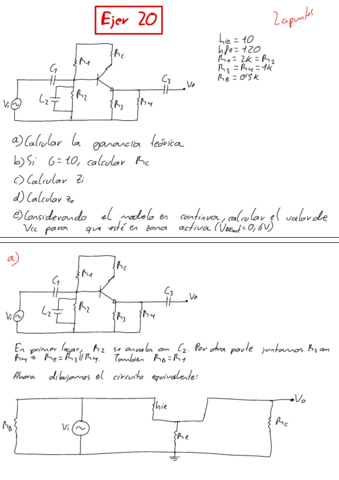 Ejer 20
2 apuntes
hie = 10
hfe = 120
R1 = 2K = R2
R3 = R4 = 1K
RB = 0'5K
R1
RC
C1
C3
Vo
C2
R2
R3
R4
Vi
a) Calcular la ganancia teórica
b) Si G = 10, calcular RC
c) Calcular Zi
d) Calcular Zo
e) Considerando el modelo en continua, calcular el valor de
Vcc para que esté en zona activa (VBEact = 0,6V)
a)
R1
RC
C1
C3
Vo
C2
R2
R3
R4
Vi
En primer lugar, R2 se anula con C2. Por otra parte juntamos R3 con
R4 → Re = R3 // R4. También RB = R1
Ahora dibujamos el circuito equivalente:
Vo
hie
RB
Vi
Re
RC